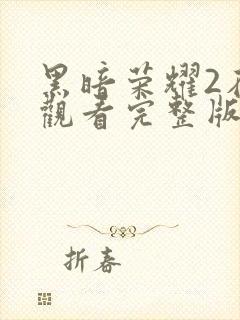 黑暗荣耀2
觀看完整版
折春